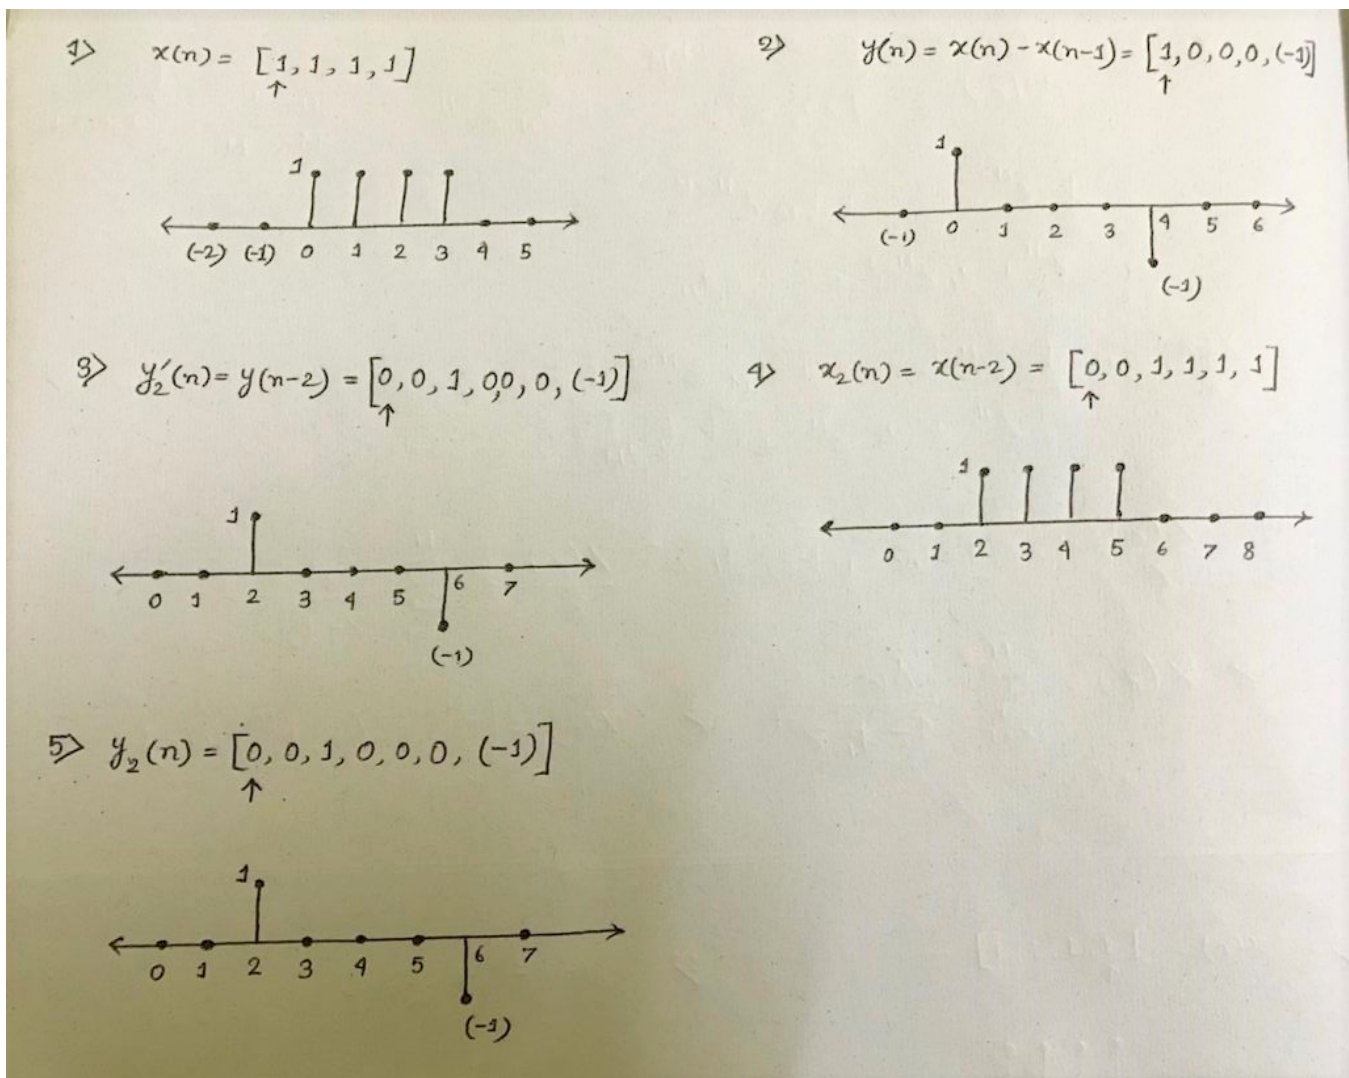 1> x(n) = [1, 1, 1, 1]
↑
1
(-2) (-1) 0 1 2 3 4 5
2> y(n) = x(n) - x(n-1) = [1, 0, 0, 0, (-1)]
↑
1
(-1) 0 1 2 3 4 5 6
(-1)
3> y₂′(n) = y(n-2) = [0, 0, 1, 0,0, 0, (-1)]
↑
1
0 1 2 3 4 5 6 7
(-1)
4> x₂(n) = x(n-2) = [0, 0, 1, 1, 1, 1]
↑
1
0 1 2 3 4 5 6 7 8
5> y₂(n) = [0, 0, 1, 0, 0, 0, (-1)]
↑
1
0 1 2 3 4 5 6 7
(-1)